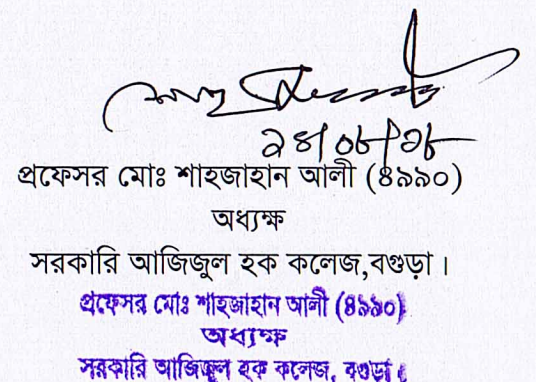 প্রফেসর মোঃ শাহজাহান আলী (৪৯৯০)
অধ্যক্ষ
সরকারি আজিজুল হক কলেজ,বগুড়া।
প্রফেসর মোঃ শাহজাহান আলী (৪৯৯০)
অধ্যক্ষ
সরকারি আজিজুল হক কলেজ, বগুড়া।